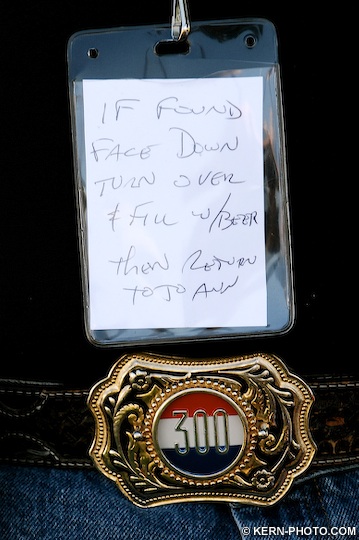 IF FOUND
FACE DOWN
TURN OVER
& FILL W/BEER
THEN RETURN
TO JO ANN
300
© KERN-PHOTO.COM